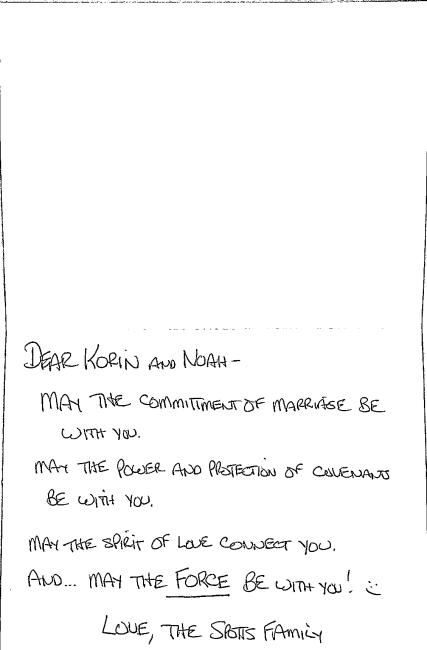 DEAR KORIN AND NOAH-
MAY THE COMMITTMENT OF MARRIAGE BE
WITH YOU.
MAY THE POWER AND PROTECTION OF COVENANTS
BE WITH YOU.
MAY THE SPIRIT OF LOVE CONNECT YOU.
AND... MAY THE FORCE BE WITH YOU! :)
LOVE, THE SPOTTS FAMILY